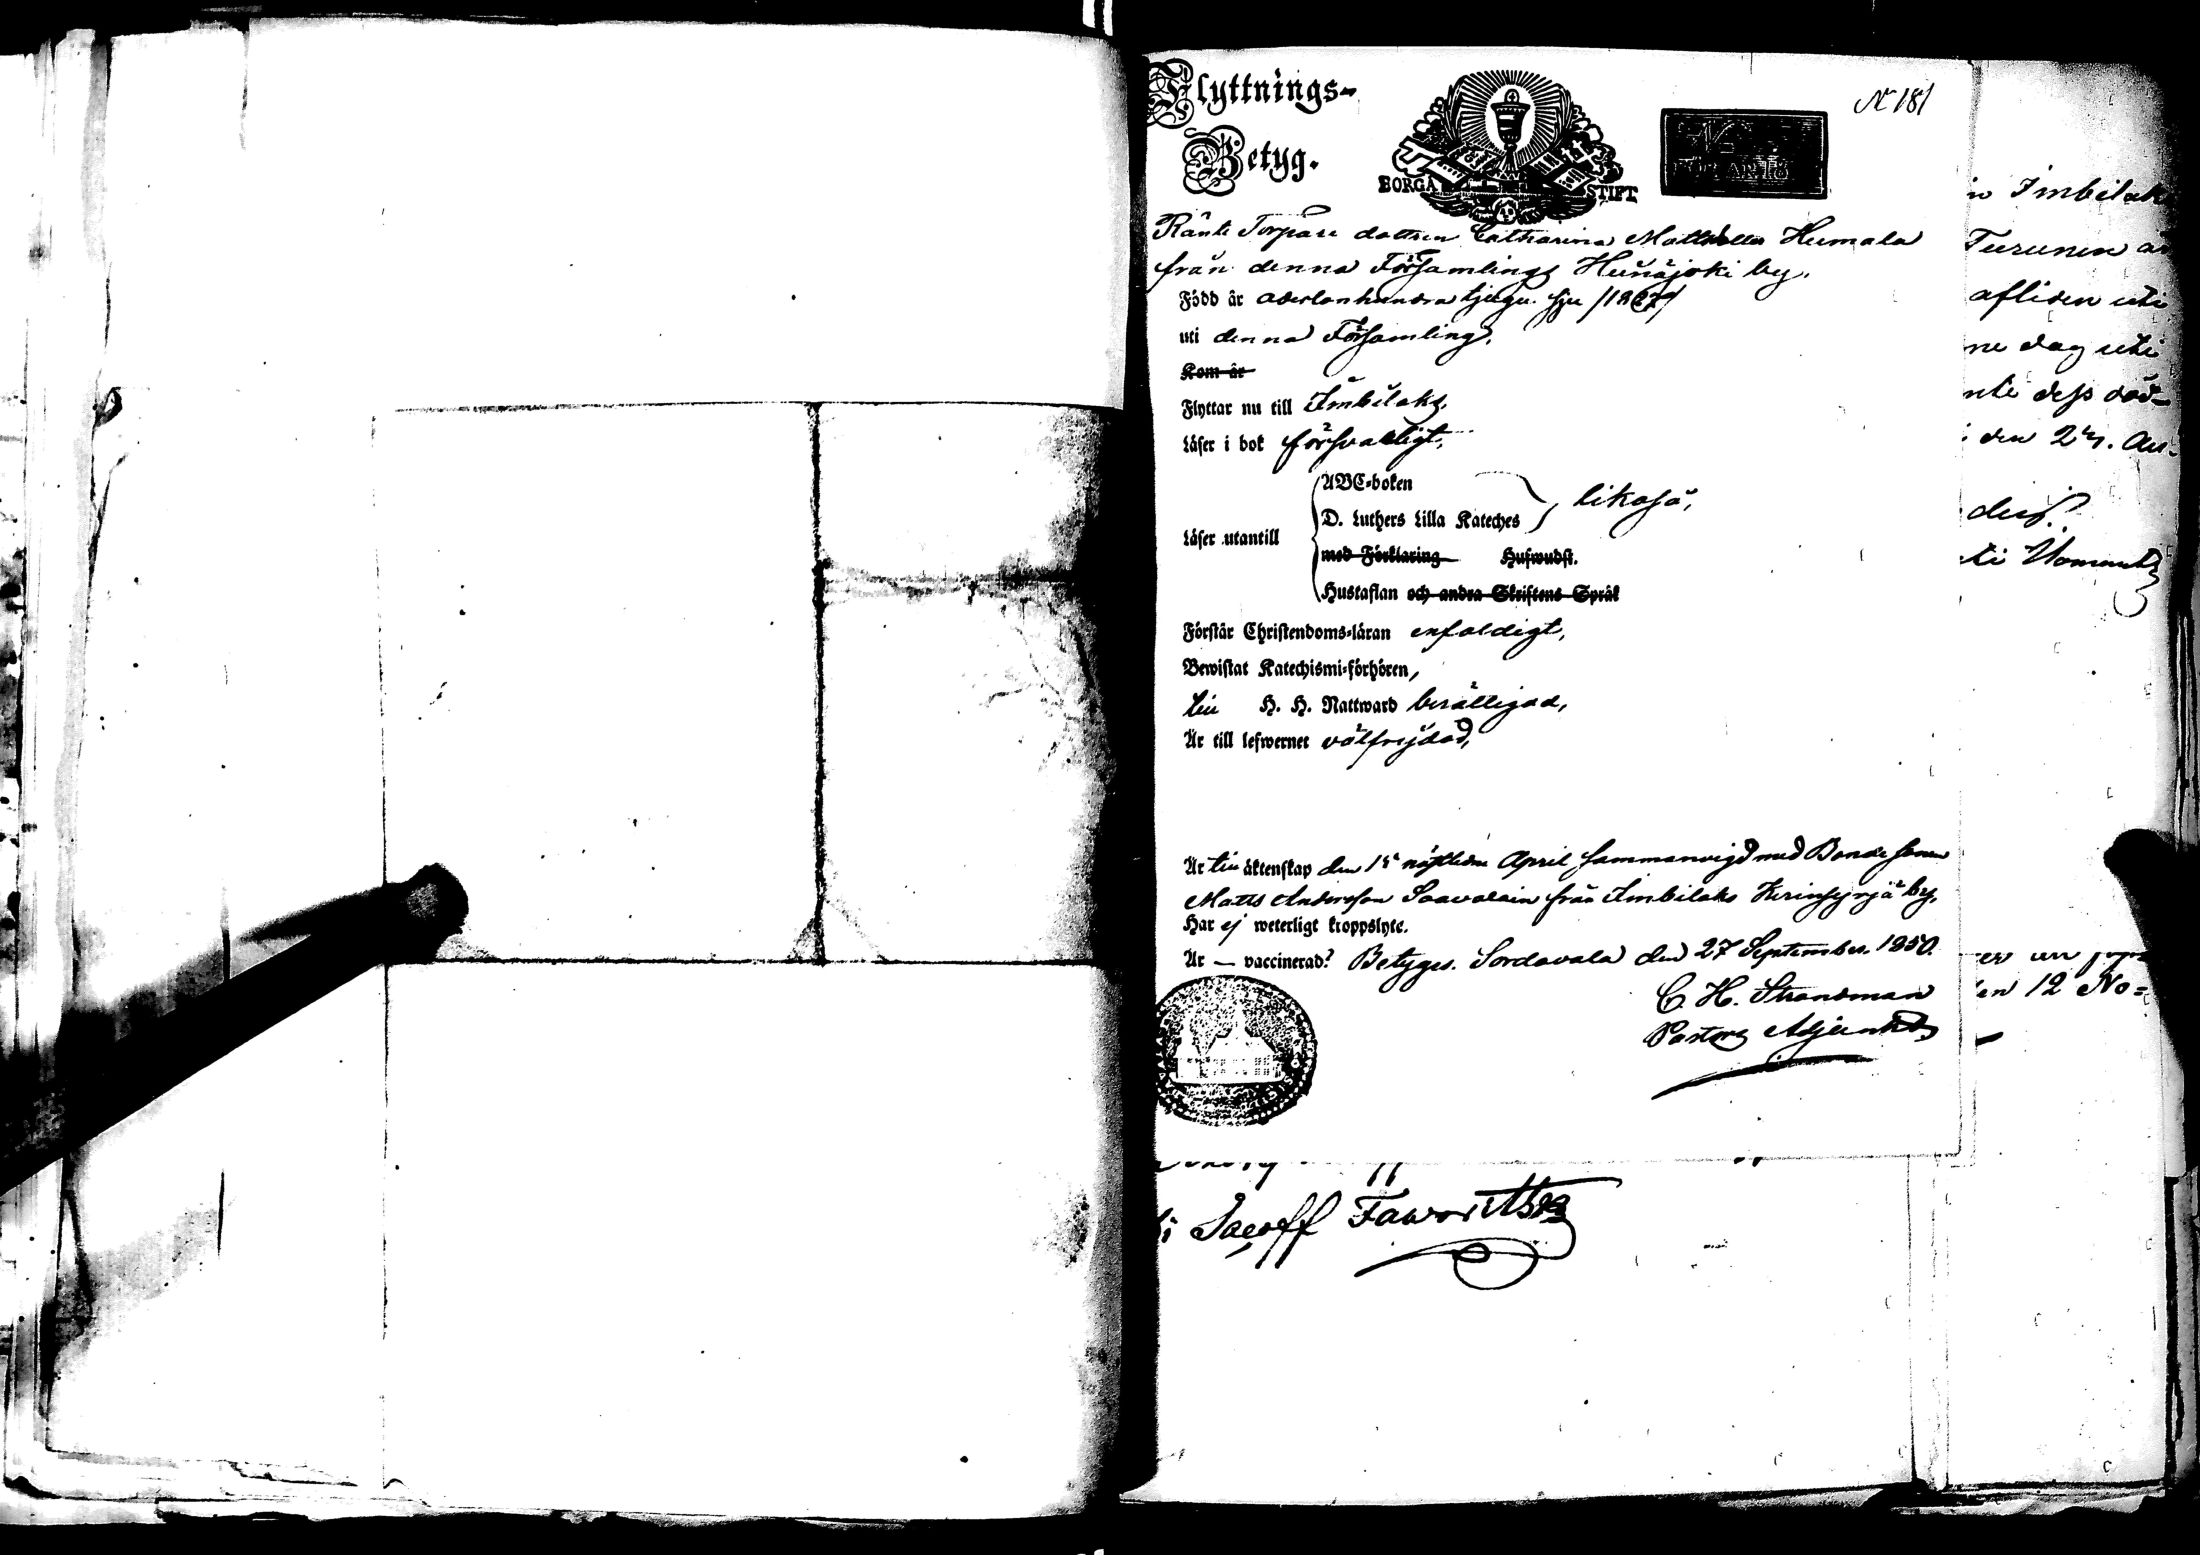 Flyttnings-
Betyg.
BORGÅ STIFT
№ 181
Ränte Torpare dottren Catharina Mattsdotter Humala
från denna Församlings Hunajoki by.
Född år adertonhundra tjugu sju /1827/
uti denna Församling.
Kom år
Flyttar nu till Imbilaks.
Läser i bok försvarligt,
Läser utantill
ABC-boken
D. Luthers Lilla Kateches
likaså,
med Förklaring Hufwudst.
Hustaflan och andra Skriftens Språk
Förstår Christendoms-läran enfaldigt,
Bewistat Katechismi-förhören,
till H. H. Nattward berättigad,
Är till lefwernet välfrejdad,
Är till äktenskap den 15 nästledne April sammanvigd med Bonde sonen
Matts Andersson Saavalain från Imbilaks by.
Har ej weterligt kroppslyte.
Är — vaccinerad? Betygas. Sordavala den 27 September 1850.
C. H. Strandman
Pastors Adjunkt
Imbilaks
Turunen
afliden uti
ne dag uti
dess död-
den 27. Au-
ti Ilomants
den 12 No=